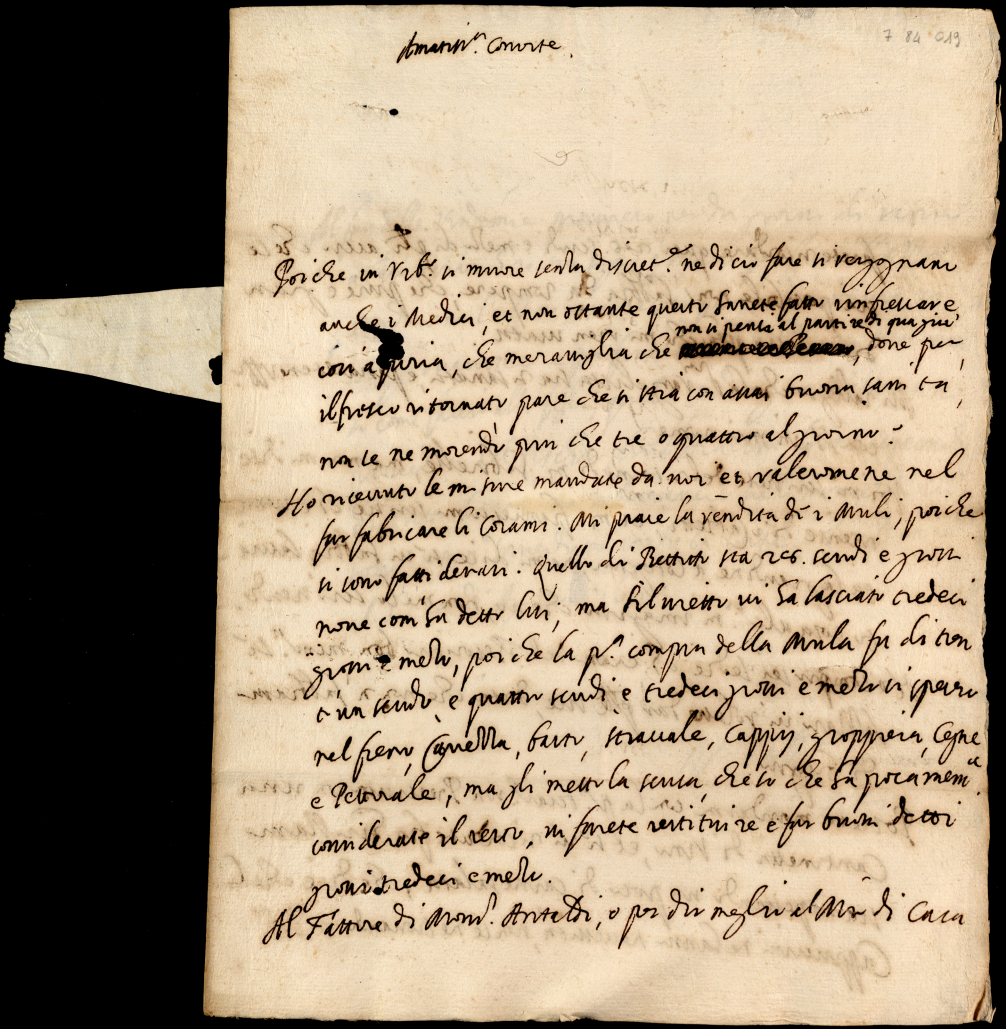 7 84 019
Amatiss.ᵃ Consorte.
Poiche in Urb.º si muore senza discret.ᵉ ne di ciò fare si vergognano
anche i Medici, et non ostante questi havete fatto rinfrescare
così a furia, che meraviglia che non si penta al partire di qua giù, dove per
il fresco ritornato pare che si stia con assai buona sanità,
non se ne morendo più che tre o quattro al giorno?
Ho ricevuto le misure mandate da voi et valeromene nel
far fabricare li Corami. Mi piace la vendita de i Muli, poiche
si sono fatti denari. Quello di Bettito sta 26. scudi e grossi
nove com ha detto lui, ma Silvietto vi ha lasciato tredeci
grossi e mezo, poiche la p.ᵃ compra della Mula fu di
un scudo, e quattro scudi e tredeci grossi e mezo si spesero
nel freno, Cavezza, basto, straccale, Cappij, groppiera, Cegne
e Pettorale, ma gli metto la scusa, che so che ha poca mem.ᵃ
considerate il resto, vi farete restituire e far buoni detti
grossi tredeci e mezo.
Al Fattore di Mons.ʳ Antaldi, o per dir meglio al Mro di Casa